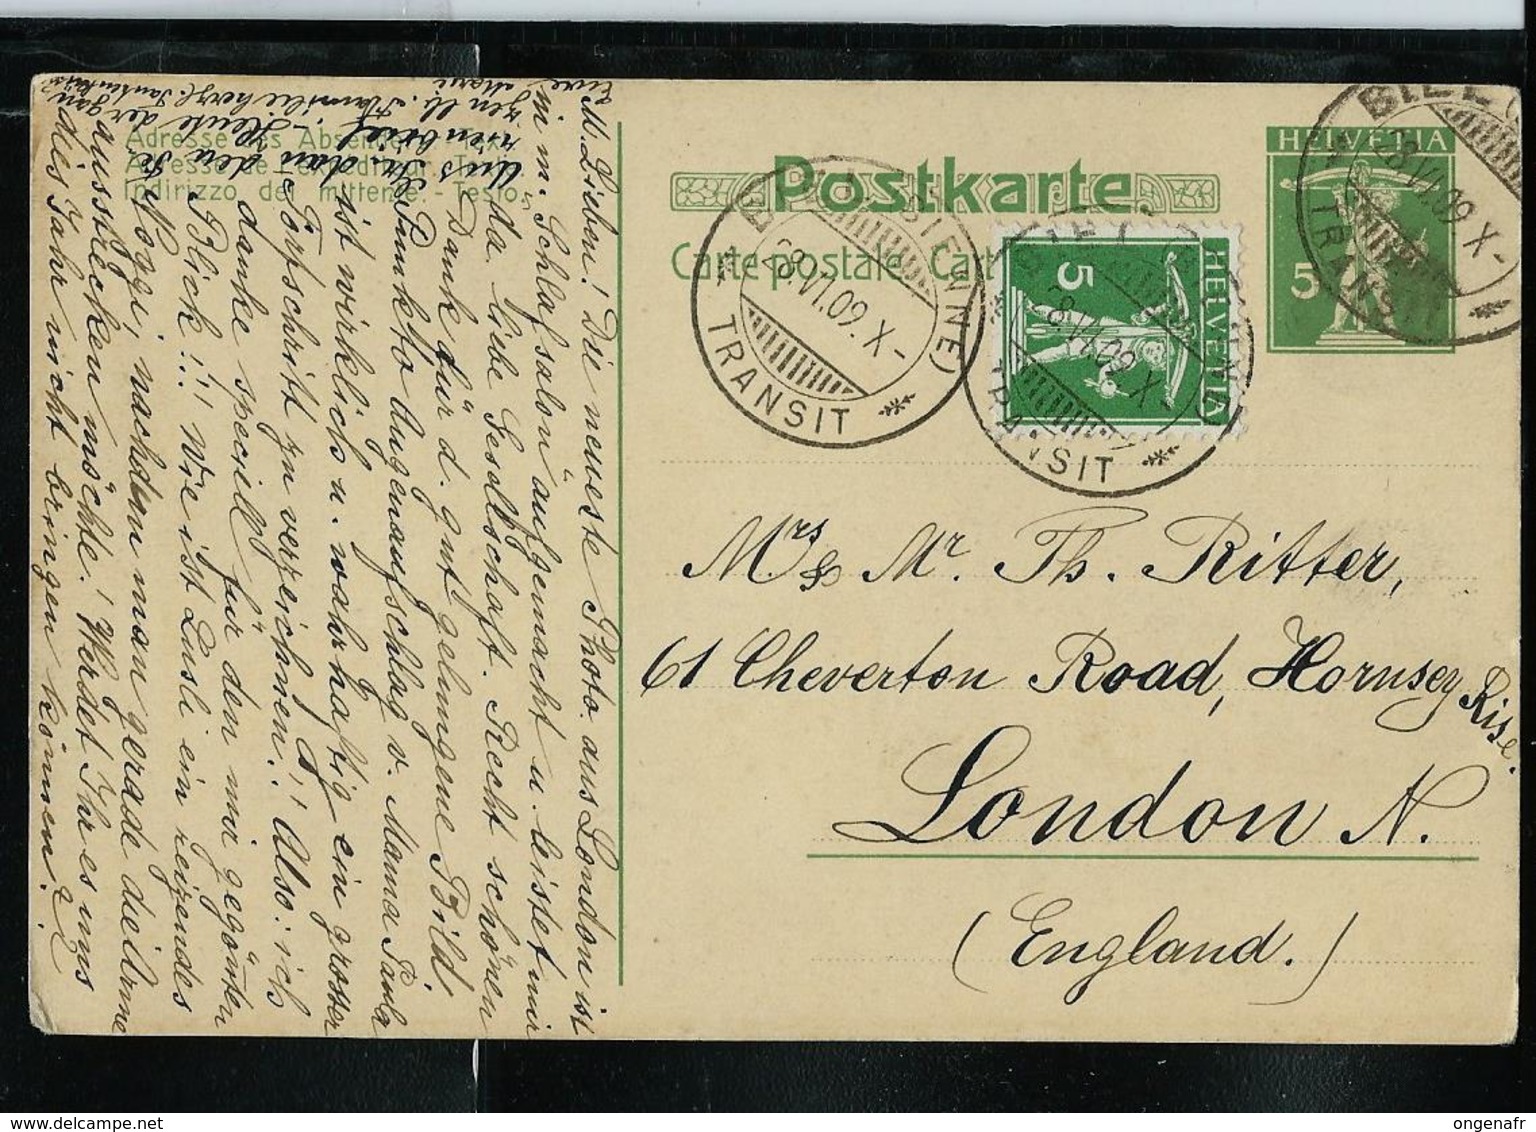 Postkarte
Carte postale. Cart
Adresse des Absenders - Text
Adresse de l'expéditeur - Texte
Indirizzo del mittente. - Testo
HELVETIA
5
HELVETIA
5
BIEL (BIENNE)
28.VI.09. X-
TRANSIT
BIEL (BIENNE)
28.VI.09. X-
TRANSIT
BIEL
28.VI.09. X-
TRANSIT
Mrs & Mr. Th. Ritter,
61 Cheverton Road, Hornsey Rise.
London N.
(England.)
M. Lieben! Die neueste Photo. aus London ist
in m. „Schlafsalon" aufgemacht u. leistet mir
da liebe Gesellschaft. Recht schönen
Dank für d. gut gelungene Bild.
Punkto Augenaufschlag v. Mama Paula
ist wirklich u. wahrhaftig ein grosser
Fortschritt zu verzeichnen!! Also: ich
danke speciell für den mir gegönten
Blick!!! Wie ist Lusli ein reizendes
Noggi, nachdem man gerade die Arme
ausstrecken möchte! Werdet Ihr es uns
dies Jahr nicht bringen können?
ongenafr